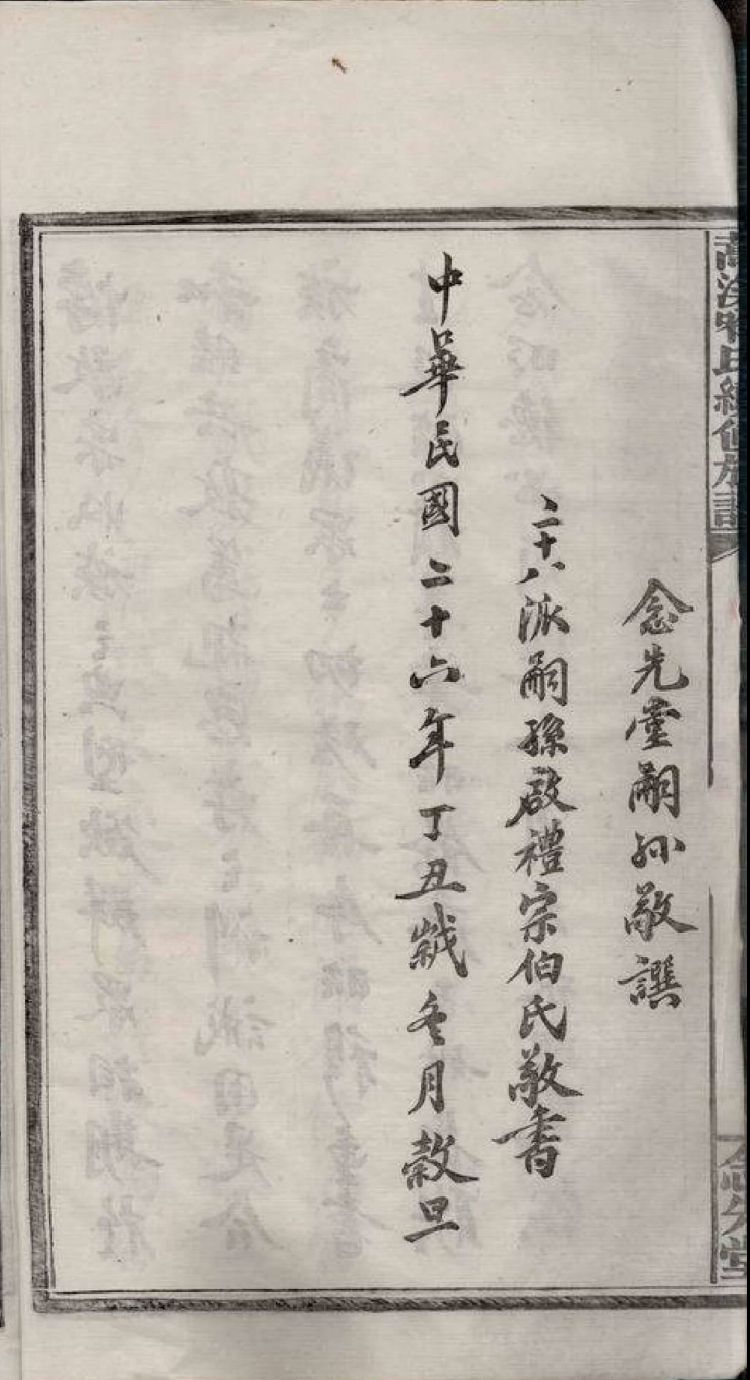 念先堂嗣孙敬譔
二十八派嗣孫啟禮宗伯氏敬書
中華民國二十六年丁丑歲冬月穀旦
氏續修族譜
念先堂